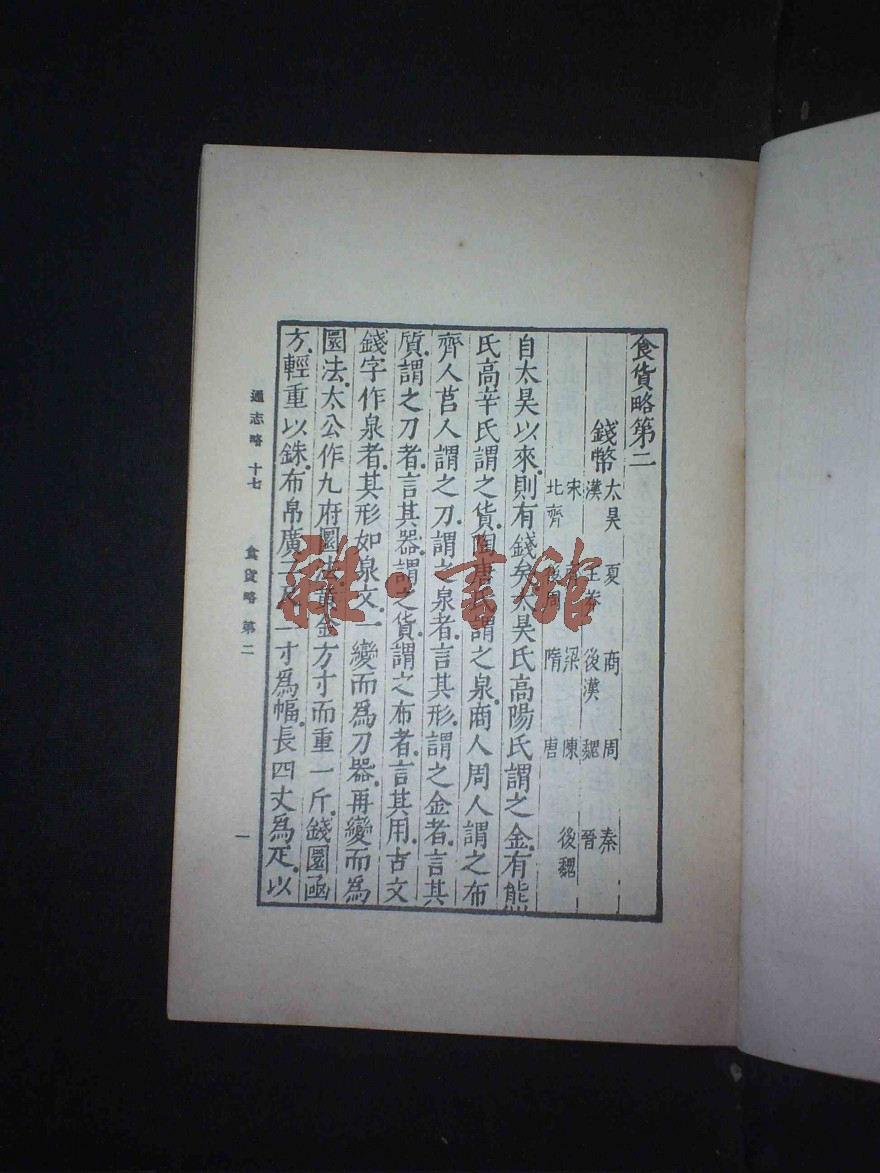 食貨略第二
錢幣
太昊 夏 商 周 秦
漢 王莽 後漢 魏 晉
宋 齊 梁 陳 後魏
北齊 後周 隋 唐
自太昊以來.則有錢矣.太昊氏高陽氏謂之金.有熊
氏高辛氏謂之貨.陶唐氏謂之泉.商人周人謂之布
齊人莒人謂之刀.謂之泉者.言其形.謂之金者.言其
質.謂之刀者.言其器.謂之貨.謂之布者.言其用.古文
錢字作泉者.其形如泉文.一變而爲刀器.再變而爲
圜法.太公作九府圜法.黃金方寸而重一斤.錢圜函
方.輕重以銖.布帛廣二尺二寸爲幅.長四丈爲疋.以
通志略 十七 食貨略 第二 一
雜·書館